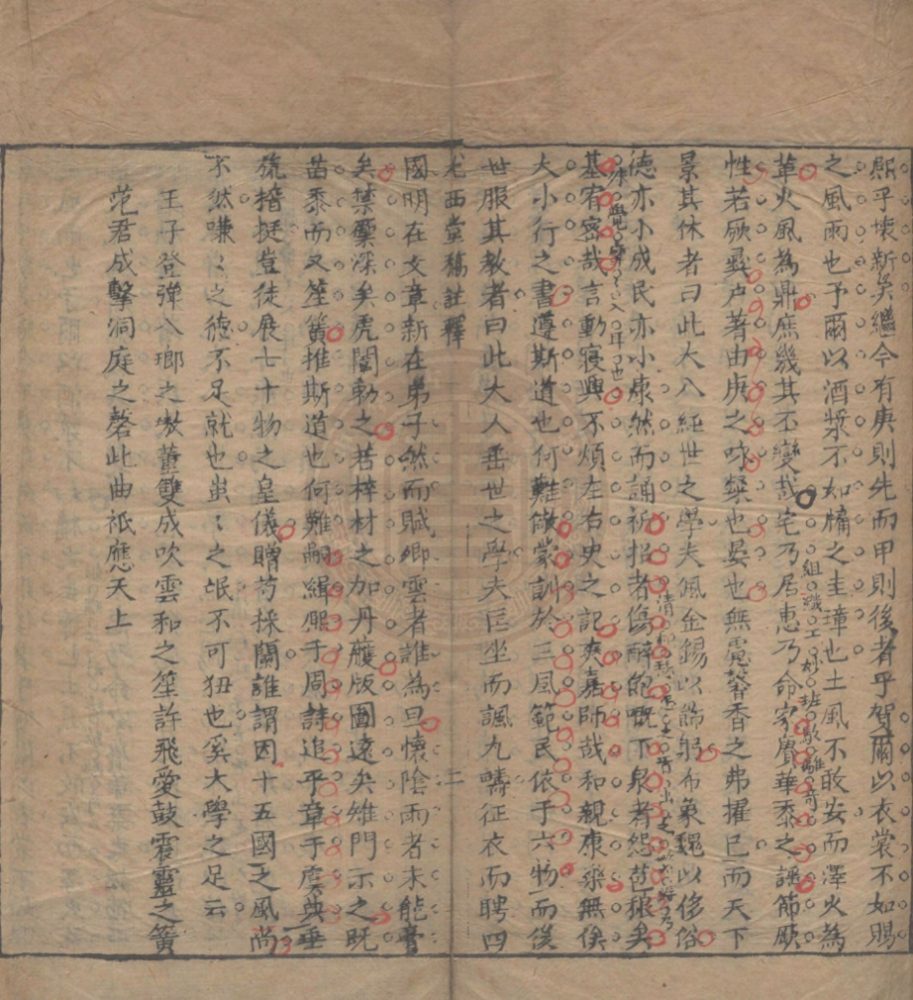 熙乎壞新矣繼今有庚則先而甲則後者乎賀爾以衣裳不如賜
之風雨也予爾以酒漿不如牗之圭璋也土風不敢安而澤火為
革火風為鼎庶幾其不變哉宅乃居惠乃命家賡華黍之謠節厥
組織工妙班駁離奇
性若厥彛户著由庚之咏粲也晏也無冤馨香之弗擢已而天下
景其休者曰此大人經世之學夫佩金錫以飾躬布象魏以侈俗
德亦小成民亦小康然而誦祈招者傷醉飽嘅下泉者怨苞稂矣
基宥密哉言動寢興不煩左右史之記爽嘉師哉和親康樂無俟
大小行之書遵斯道也何難儆蒙訓於三風範民依于六物而後
世服其教者曰此大人垂世之學夫匡坐而諷九疇征衣而聘四
尤西堂稿註釋 二
國明在文章新在弟子然而賦卿雲者誰為旦懷陰雨者未能膏
矣葉鼏深矣虎闈勅之若梓材之加丹雘版圖遠矣雉門示之既
苗黍而又笙簧推斯道也何難嗣緝熈于周詩追乎章于虞典垂
旒搢挺豈徒展七十物之皇儀贈芍採蘭誰謂因十五國之風尚
不然嗛〻之德不足就也蚩〻之氓不可狃也奚大學之足云
王子登彈八瑯之璈董雙成吹雲和之笙許飛愛鼓震靈之簧
范君成擊洞庭之磬此曲祇應天上